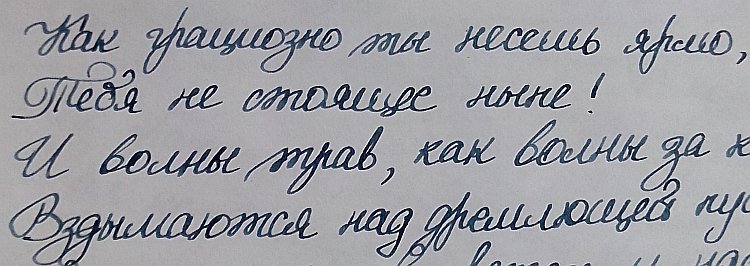 Как грациозно ты несешь ярмо,
Тебя не стоящее ныне!
И волны трав, как волны за к
Вздымаются над дремлющей пус